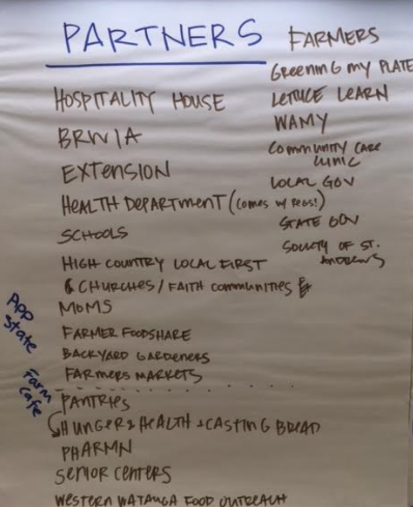 PARTNERS
HOSPITALITY HOUSE
BRWIA
EXTENSION
HEALTH DEPARTMENT (COMES W/ REGS!)
SCHOOLS
HIGH COUNTRY LOCAL FIRST
CHURCHES / FAITH COMMUNITIES
MOMS
FARMER FOODSHARE
BACKYARD GARDENERS
FARMERS MARKETS
PANTRIES
HUNGER & HEALTH & CASTING BREAD
PHARMN
SENIOR CENTERS
WESTERN WATAUGA FOOD OUTREACH
FARMERS
GREENING MY PLATE
LETTUCE LEARN
WAMY
COMMUNITY CARE
CLINIC
LOCAL GOV
STATE GOV
SOCIETY OF ST.
ANDREWS
APP
STATE
FARM
CAFE